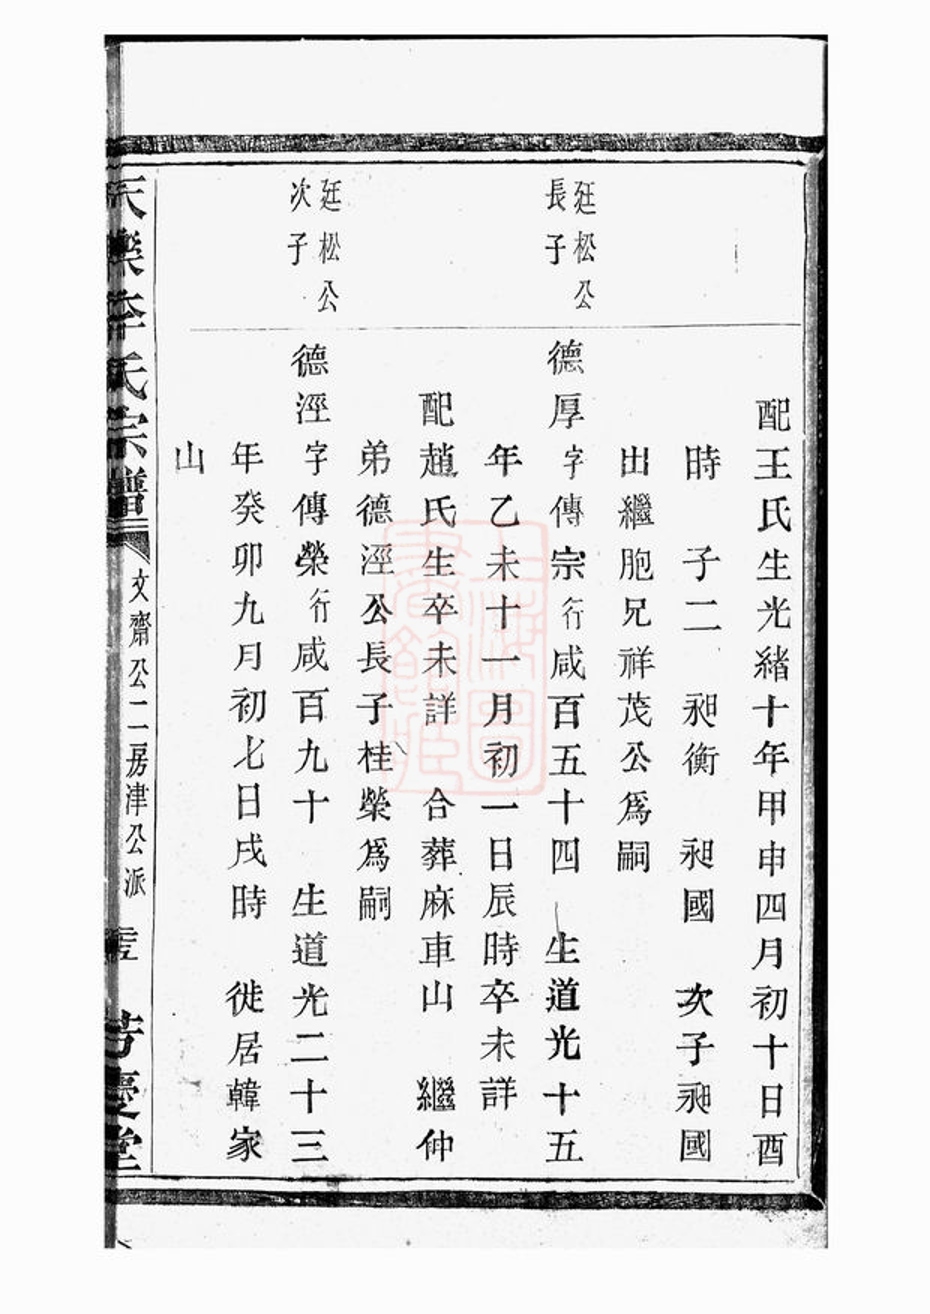 配王氏生光緒十年甲申四月初十日酉
時 子二 昶衡 昶國 次子昶國
出繼胞兄祥茂公爲嗣
廷松公
長子
德厚字傳宗行咸百五十四 生道光十五
年乙未十一月初一日辰時卒未詳
配趙氏生卒未詳 合葬麻車山 繼仲
弟德涇公長子桂榮爲嗣
廷松公
次子
德涇字傳榮行咸百九十 生道光二十三
年癸卯九月初七日戌時 徙居韓家
山
天樂李氏宗譜 文齋公二房津公派 慶堂